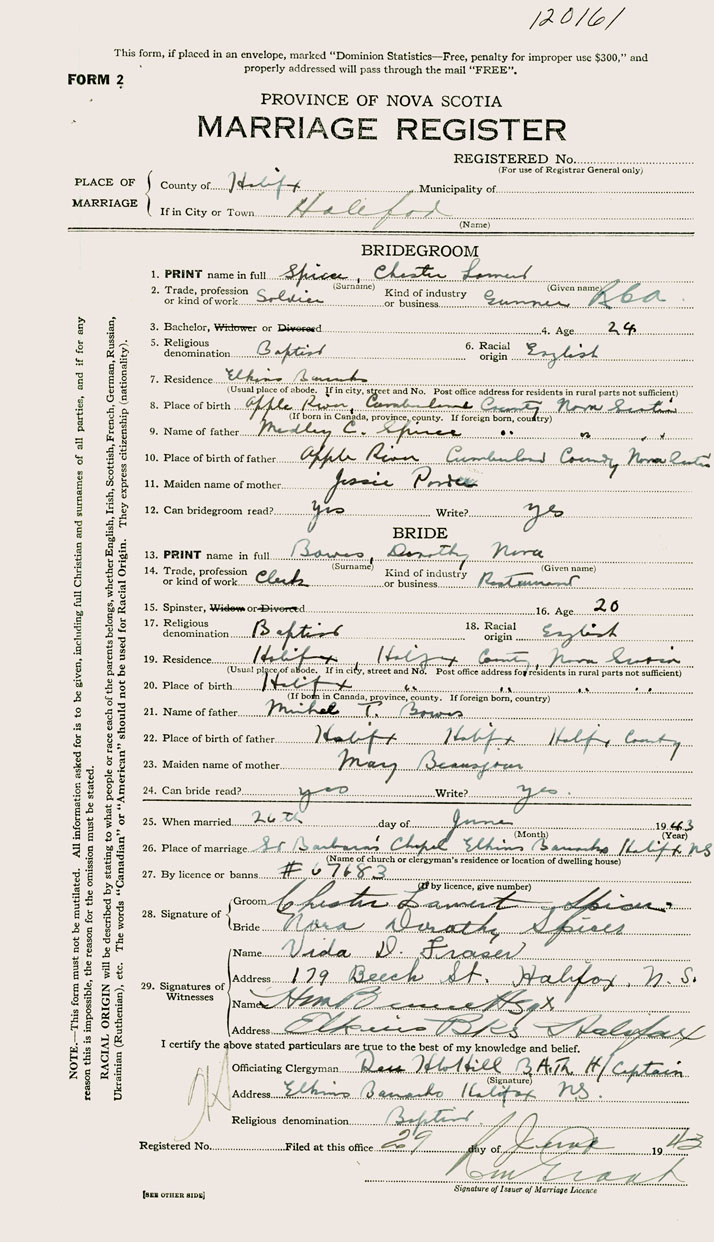 120161
This form, if placed in an envelope, marked "Dominion Statistics—Free, penalty for improper use $300," and
properly addressed will pass through the mail "FREE".
FORM 2
PROVINCE OF NOVA SCOTIA
MARRIAGE REGISTER
REGISTERED No.
(For use of Registrar General only)
PLACE OF MARRIAGE
County of Halifx Municipality of
If in City or Town Halifax
(Name)
BRIDEGROOM
1. PRINT name in full Spicer, Chester Lamert
(Surname) (Given name)
2. Trade, profession or kind of work Soldier Kind of industry or business Gunner RCA
3. Bachelor, Widower or Divorced 4. Age 24
5. Religious denomination Baptist 6. Racial origin English
7. Residence Elkins Barracks
(Usual place of abode. If in city, street and No. Post office address for residents in rural parts not sufficient)
8. Place of birth Apple River, Cumberland County Nova Scotia
(If born in Canada, province, county. If foreign born, country)
9. Name of father Medley C. Spicer " " "
10. Place of birth of father Apple River Cumberland County Nova Scotia
11. Maiden name of mother Jessie
12. Can bridegroom read? yes Write? yes
BRIDE
13. PRINT name in full Bowes, Dorothy Nora
(Surname) (Given name)
14. Trade, profession or kind of work Clerk Kind of industry or business Restaurant
15. Spinster, Widow or Divorced 16. Age 20
17. Religious denomination Baptist 18. Racial origin English
19. Residence Halifax, Halifax County, Nova Scotia
(Usual place of abode. If in city, street and No. Post office address for residents in rural parts not sufficient)
20. Place of birth Halifx " " " "
(If born in Canada, province, county. If foreign born, country)
21. Name of father Michel T. Bowes
22. Place of birth of father Halifx Halifx Halifx County
23. Maiden name of mother Mary
24. Can bride read? yes Write? yes.
25. When married 26th day of June 1943
(Month) (Year)
26. Place of marriage St Barbara's Chapel Elkins Barracks Halifx NS
(Name of church or clergyman's residence or location of dwelling house)
27. By licence or banns # 67683
(If by licence, give number)
28. Signature of
Groom Chester Lamert Spicer
Bride Nora Dorothy Spicer
29. Signatures of Witnesses
Name Vida D. Fraser
Address 179 Beech St. Halifax, N.S.
Name
Address Elkins Bks Halifax
I certify the above stated particulars are true to the best of my knowledge and belief.
Officiating Clergyman Hill B.A. Th H/Captain
(Signature)
Address Elkins Barracks Halifax NS.
Religious denomination Baptist
Registered No. Filed at this office 29 day of June 1943
Signature of Issuer of Marriage Licence
[SEE OTHER SIDE]
NOTE.—This form must not be mutilated. All information asked for is to be given, including full Christian and surnames of all parties, and if for any
reason this is impossible, the reason for the omission must be stated.
RACIAL ORIGIN will be described by stating to what people or race each of the parents belongs, whether English, Irish, Scottish, French, German, Russian,
Ukrainian (Ruthenian), etc. The words "Canadian" or "American" should not be used for Racial Origin. They express citizenship (nationality).